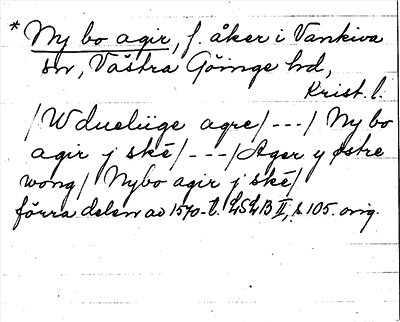 * Ny bo agir, f. åker i Vankiva
sn, Västra Göinge hd,
Krist. l.
/W dueliige agre/---/ Ny bo
agir j ské/---/Ager y østre
wong/ Nybo agir j ské/
förra delen av 1570-t. LSLB II, s 105. orig.